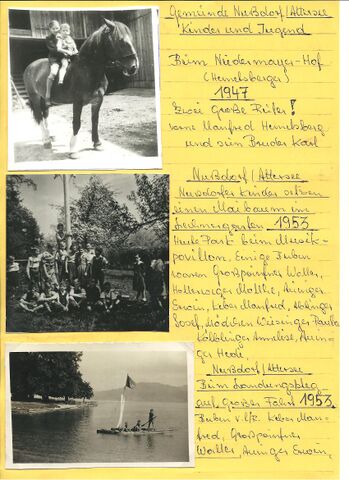 Gemeinde Nußdorf/Attersee
Kinder und Jugend
Beim Niedermayer-Hof
(Hemetsberger)
1947
Zwei Große Reiter!
vorne Manfred Hemetsberg
und sein Bruder Karl
Nußdorf/Attersee
Nußdorfer Kinder setzen
einen Maibaum im
1953
Heute Park beim Musik-
pavillon, Einige Buben
waren Großpointner Walter,
Erwin, Leber Manfred,
Josef, Mädchen Wiesinger Paula
Annelise, Aunin-
ger Hedi,
Nußdorf/Attersee
Beim Landungssteg
auf Großer Fahrt 1953
Buben v.l.n. Leber Man-
fred, Großpointner
Walter, Auniger Erwin,